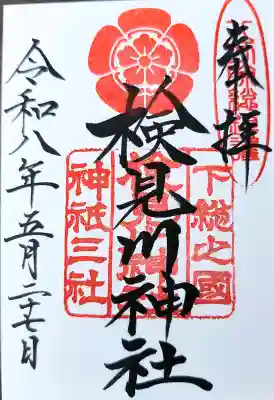 奉拝
下総之國
検見川神社
神祇三社
令和八年五月二十七日